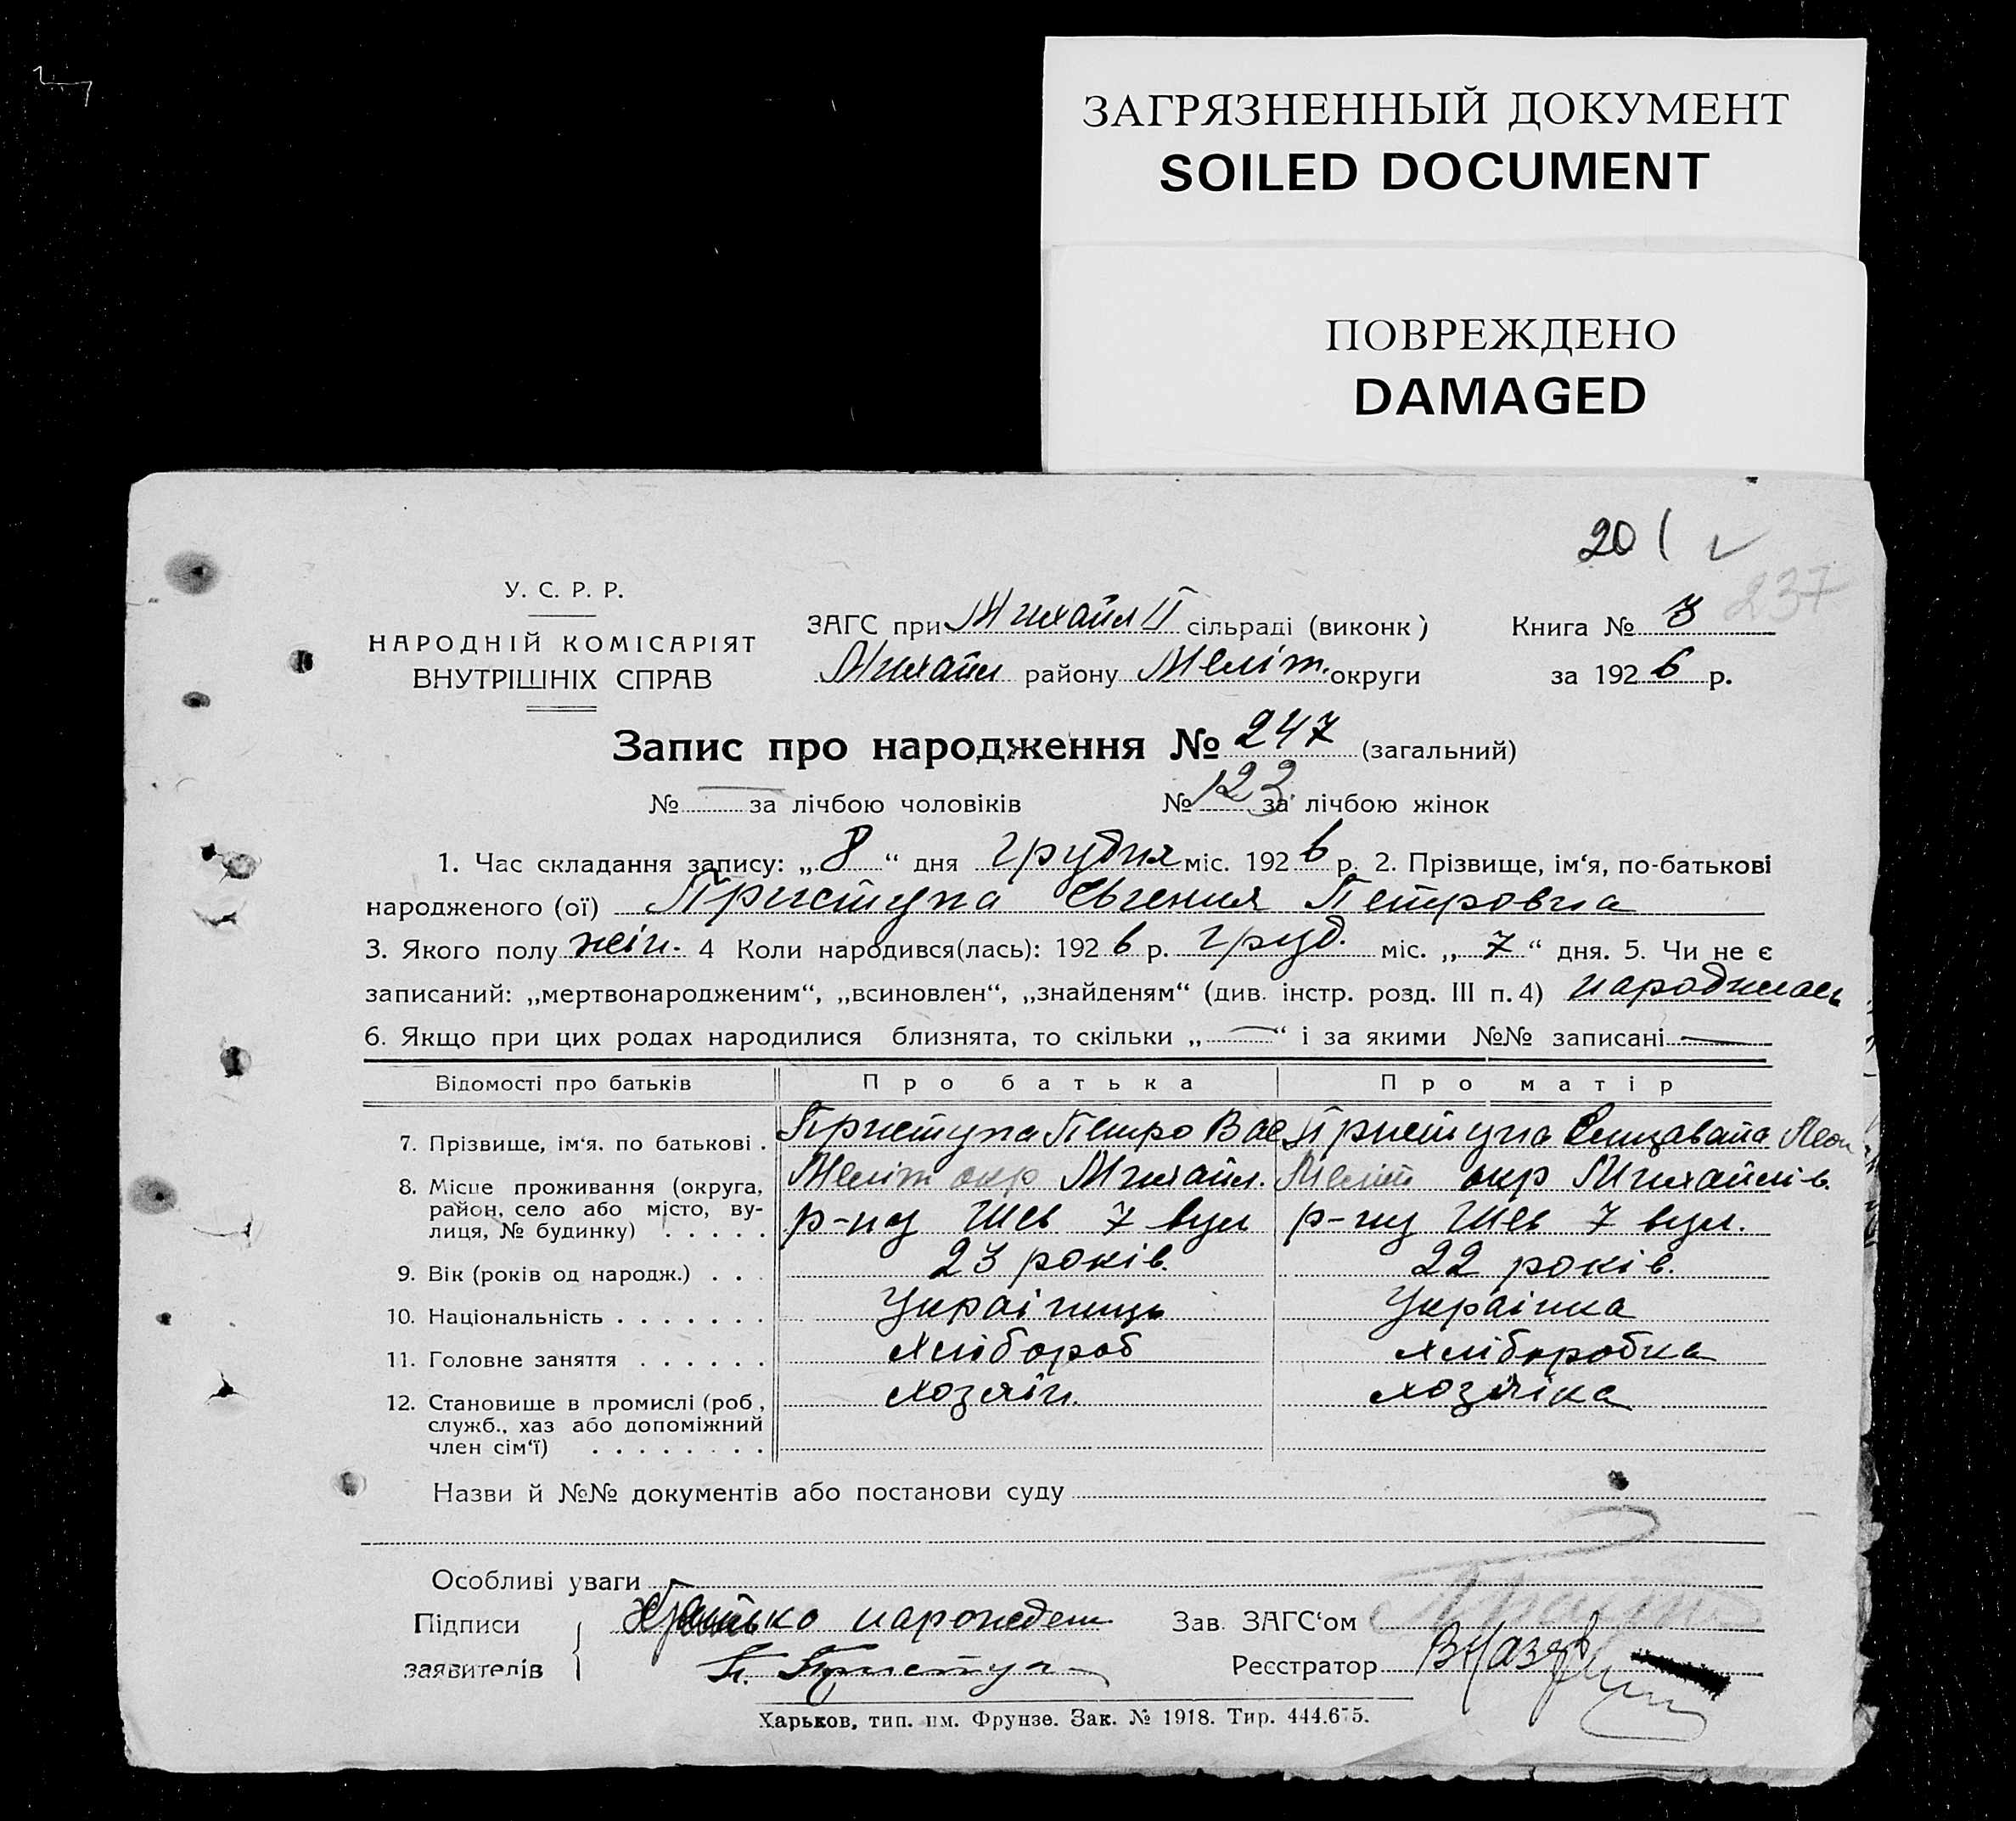 ЗАГРЯЗНЕННЫЙ ДОКУМЕНТ
SOILED DOCUMENT
ПОВРЕЖДЕНО
DAMAGED
201
237
У. С. Р. Р.
НАРОДНІЙ КОМІСАРІЯТ
ВНУТРІШНІХ СПРАВ
ЗАГС при Михайл II сільраді (виконк)
Михайл району Меліт. округи
Книга № 3
за 1926 р.
Запис про народження № 247 (загальний)
№ — за лічбою чоловіків № 123 за лічбою жінок
1. Час складання запису: „8“ дня грудня міс. 1926 р. 2. Прізвище, ім‘я, по-батькові
народженого (ої) Приступа Євгения Петровна
3. Якого полу жін. 4 Коли народився(лась): 1926 р. груд. міс. „7“ дня. 5. Чи не є
записаний: „мертвонародженим“, „всиновлен“, „знайденям“ (див. інстр. розд. III п. 4) народилась
6. Якщо при цих родах народилися близнята, то скільки „—“ і за якими №№ записані —
Відомості про батьків Про батька Про матір
7. Прізвище, ім‘я. по батькові . Приступа Петро Вас Приступа Елизавата Леон
8. Місце проживання (округа, район, село або місто, вулиця, № будинку) . . . . . Меліт окр Михайл. Меліт окр Михайлів.
р-ну Шев 7 вул р-ну Шев 7 вул.
9. Вік (років од народж.) . . . 23 років. 22 років.
10. Національність . . . . . . . Українць Українка
11. Головне заняття . . . . . . Хлібороб хліборобка
12. Становище в промислі (роб, служб., хаз або допоміжний член сім‘ї) . . . . . . . . хозяін. хозяіка
Назви й №№ документів або постанови суду
Особливі уваги
Підписи
заявителів
батько нарожден
П. Приступа
Зав. ЗАГС‘ом
Реєстратор
Харьков, тип. им. Фрунзе. Зак. № 1918. Тир. 444.675.